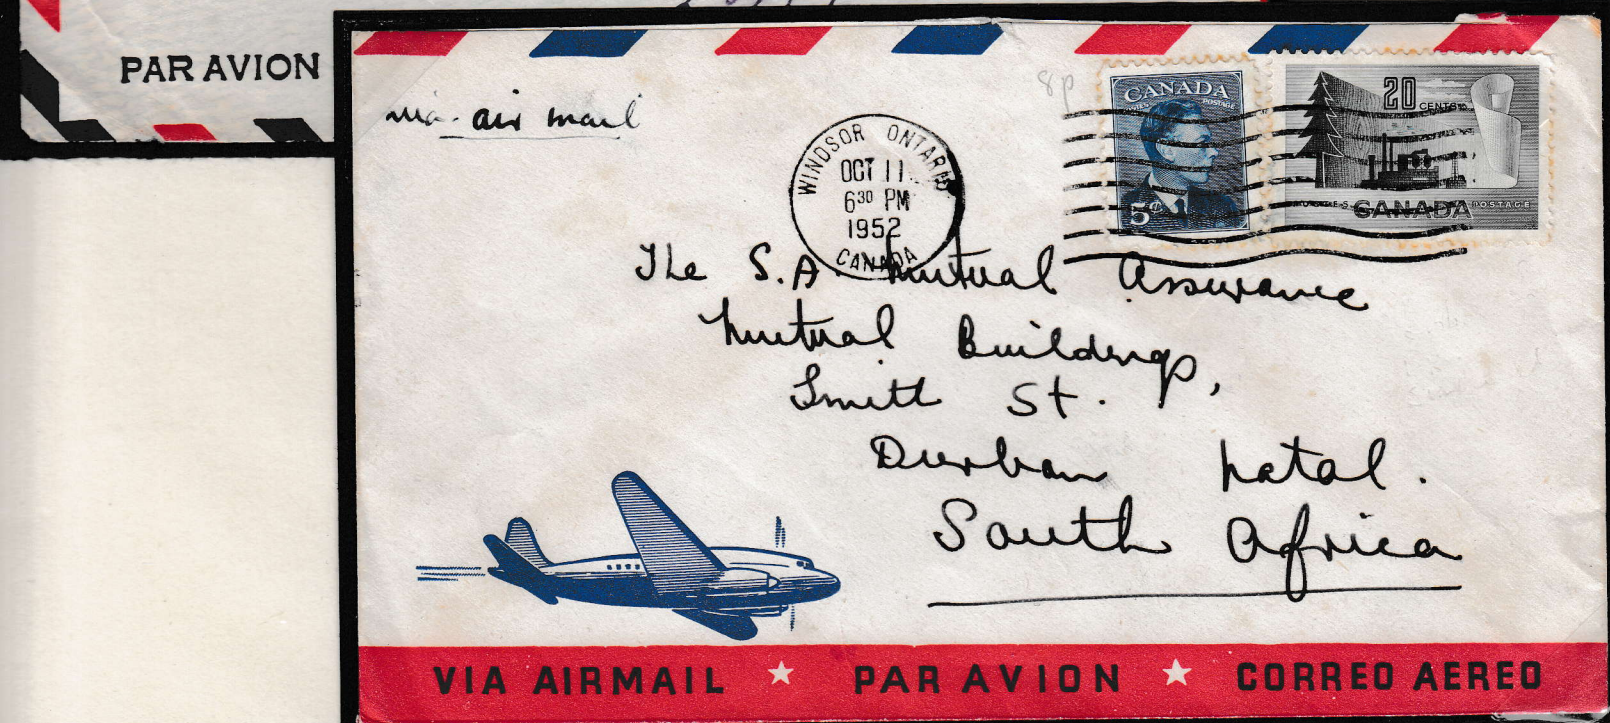 PAR AVION
via air mail
8p
WINDSOR ONTARIO
OCT 11
6 30 PM
1952
CANADA
CANADA
POSTES POSTAGE
5¢
20 CENTS
POSTES CANADA POSTAGE
The S.A. Mutual Assurance
Mutual Buildings,
Smith St.
Durban Natal.
South Africa
VIA AIRMAIL ★ PAR AVION ★ CORREO AEREO